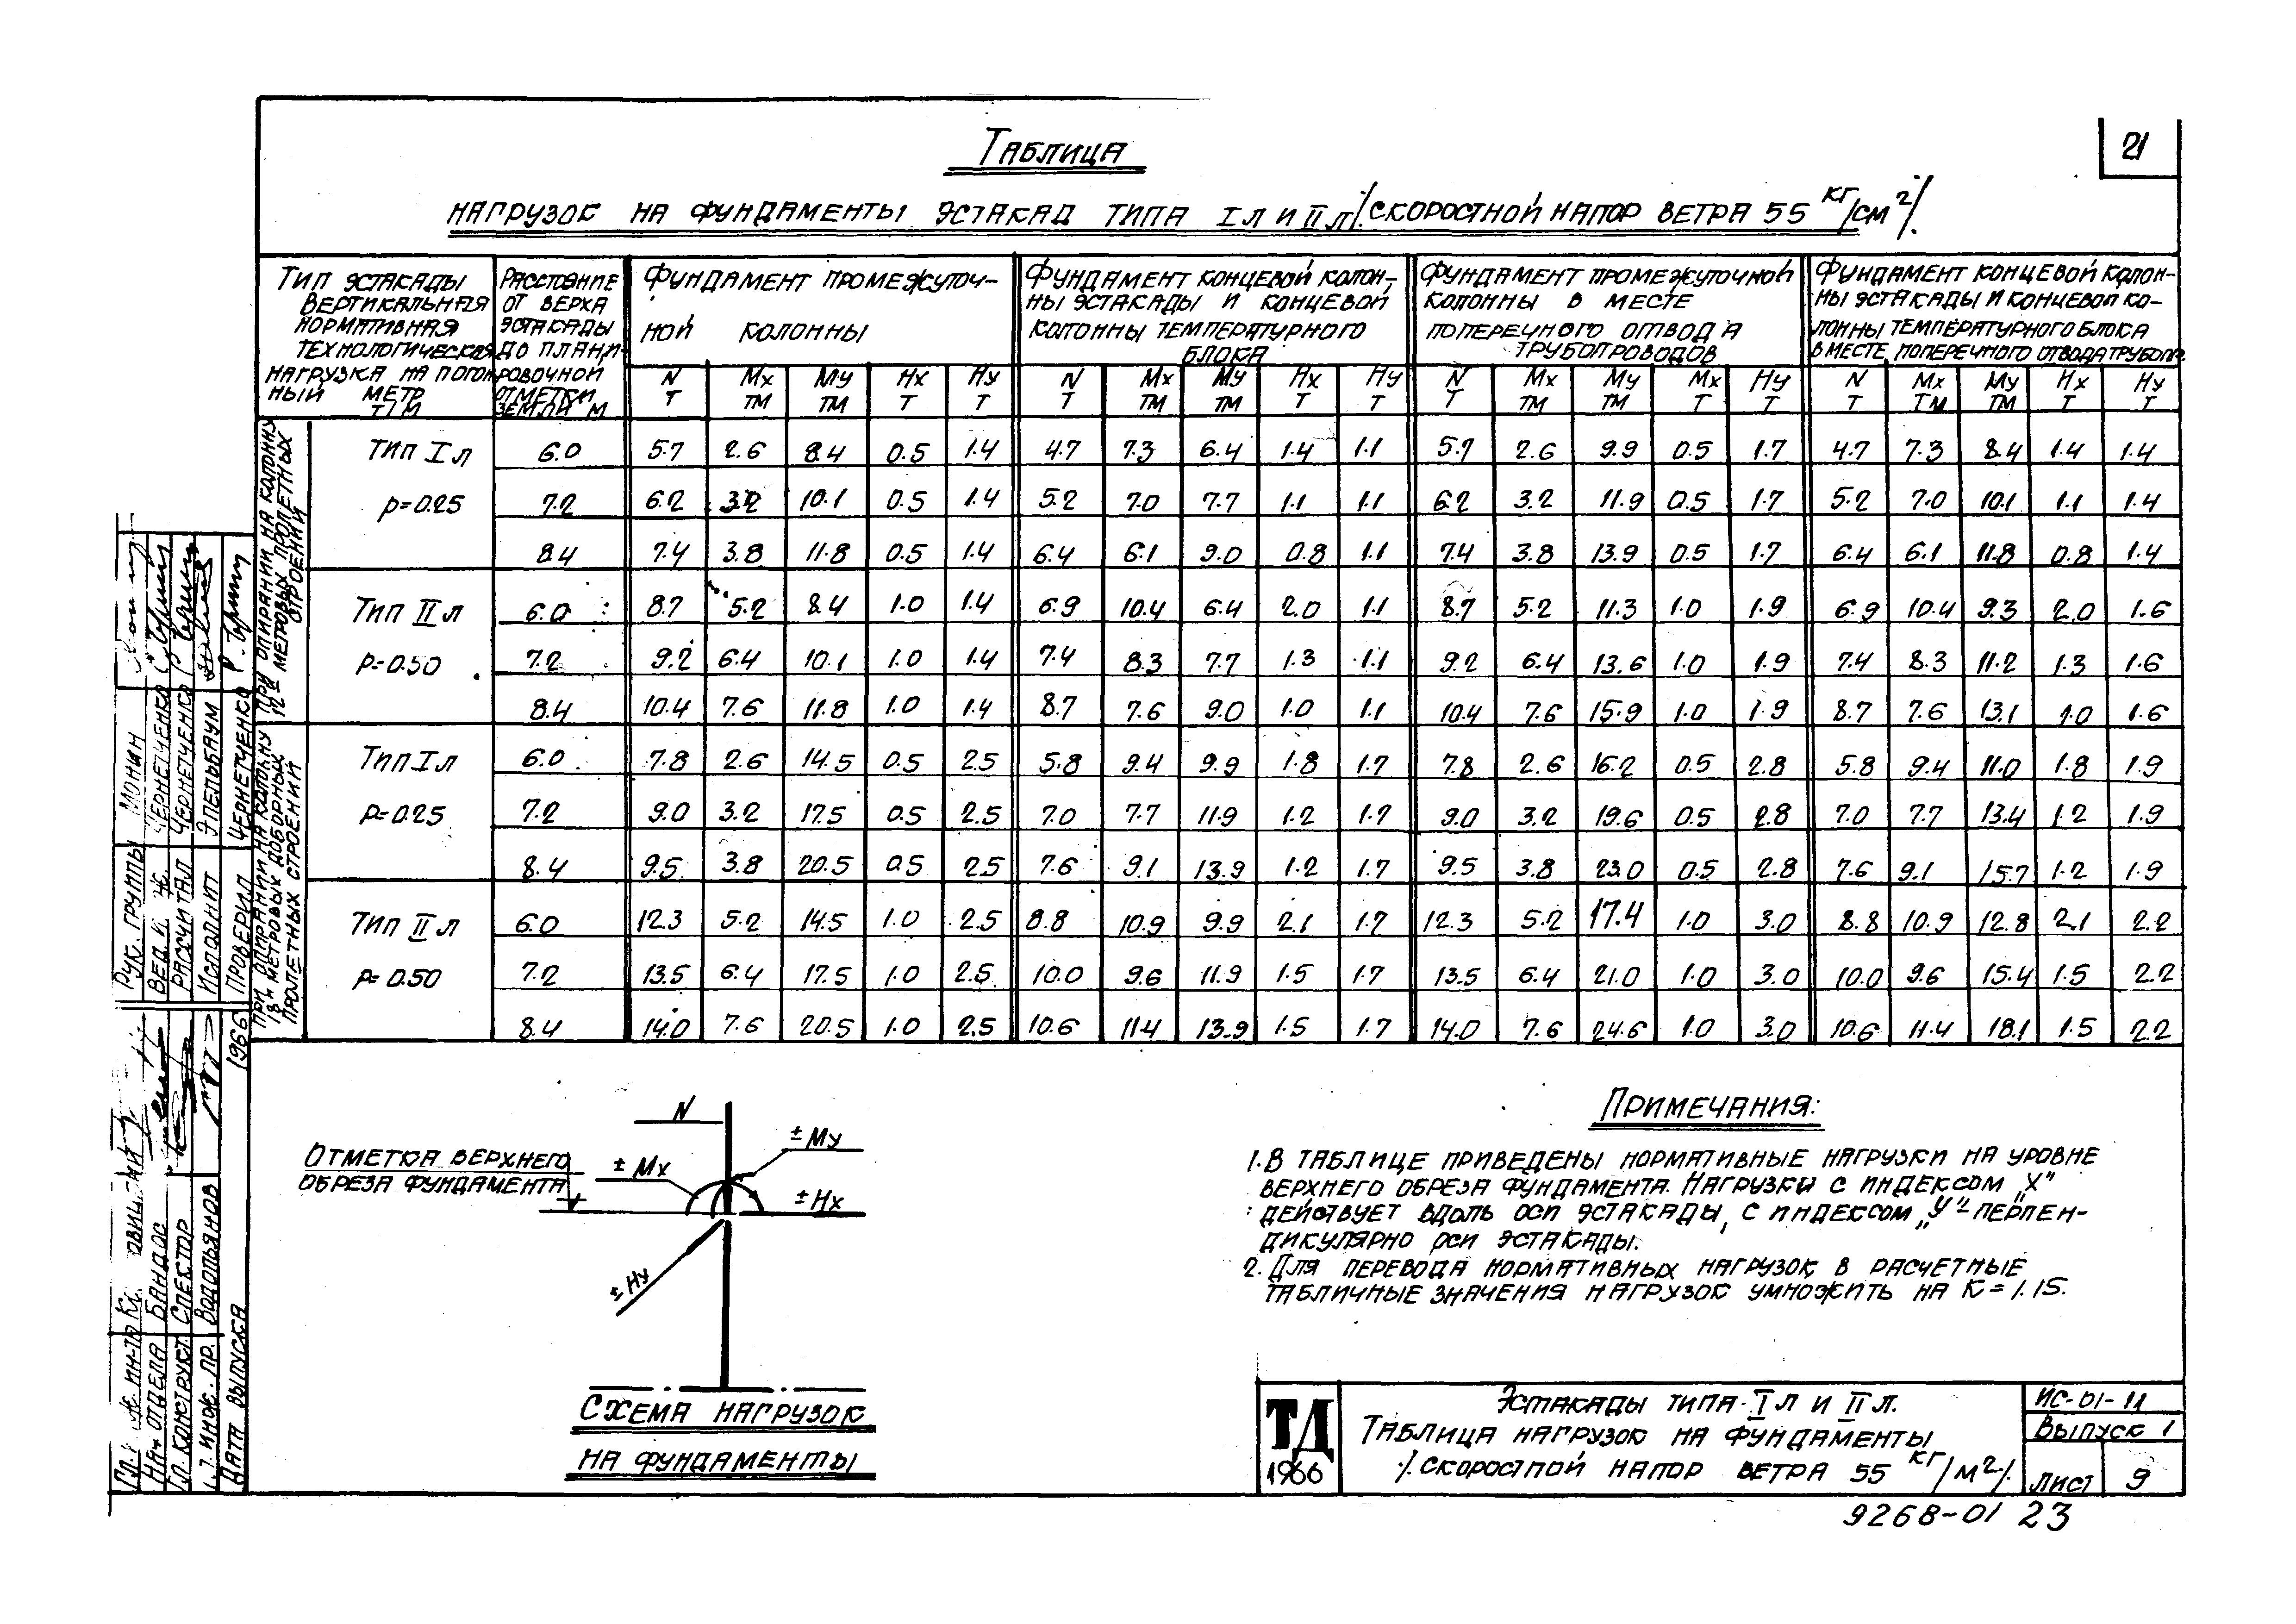 21
Таблица
нагрузок на фундаменты эстакад типа I л и II л /скоростной напор ветра 55 кг/см²/.
Тип эстакады
вертикальная
нормативная
технологическая
нагрузка на погон-
ный метр
т/м
Расстояние
от верха
эстакады
до плани-
ровочной
отметки
земли м
Фундамент промежуточ-
ной колонны
Фундамент концевой колон-
ны эстакады и концевой
колонны температурного
блока
Фундамент промежуточной
колонны в месте
поперечного отвода
трубопроводов
Фундамент концевой колон-
ны эстакады и концевой ко-
лонны температурного блока
в месте поперечного отвода трубопр.
N Mx My Hx Hy N Mx My Hx Hy N Mx My Mx Hy N Mx My Hx Hy
т тм тм т т т тм тм т т т тм тм т т т тм тм т т
При опирании на колонну
12и метровых пролетных
строений
Тип I л 6.0 5.7 2.6 8.4 0.5 1.4 4.7 7.3 6.4 1.4 1.1 5.7 2.6 9.9 0.5 1.7 4.7 7.3 8.4 1.4 1.4
p=0.25 7.2 6.2 3.2 10.1 0.5 1.4 5.2 7.0 7.7 1.1 1.1 6.2 3.2 11.9 0.5 1.7 5.2 7.0 10.1 1.1 1.4
8.4 7.4 3.8 11.8 0.5 1.4 6.4 6.1 9.0 0.8 1.1 7.4 3.8 13.9 0.5 1.7 6.4 6.1 11.8 0.8 1.4
Тип II л 6.0 8.7 5.2 8.4 1.0 1.4 6.9 10.4 6.4 2.0 1.1 8.7 5.2 11.3 1.0 1.9 6.9 10.4 9.3 2.0 1.6
p=0.50 7.2 9.2 6.4 10.1 1.0 1.4 7.4 8.3 7.7 1.3 1.1 9.2 6.4 13.6 1.0 1.9 7.4 8.3 11.2 1.3 1.6
8.4 10.4 7.6 11.8 1.0 1.4 8.7 7.6 9.0 1.0 1.1 10.4 7.6 15.9 1.0 1.9 8.7 7.6 13.1 1.0 1.6
При опирании на колонну
18и метровых доборных
пролетных строений
Тип I л 6.0 7.8 2.6 14.5 0.5 2.5 5.8 9.4 9.9 1.8 1.7 7.8 2.6 16.2 0.5 2.8 5.8 9.4 11.0 1.8 1.9
p=0.25 7.2 9.0 3.2 17.5 0.5 2.5 7.0 7.7 11.9 1.2 1.7 9.0 3.2 19.6 0.5 2.8 7.0 7.7 13.4 1.2 1.9
8.4 9.5 3.8 20.5 0.5 2.5 7.6 9.1 13.9 1.2 1.7 9.5 3.8 23.0 0.5 2.8 7.6 9.1 15.7 1.2 1.9
Тип II л 6.0 12.3 5.2 14.5 1.0 2.5 8.8 10.9 9.9 2.1 1.7 12.3 5.2 17.4 1.0 3.0 8.8 10.9 12.8 2.1 2.2
p=0.50 7.2 13.5 6.4 17.5 1.0 2.5 10.0 9.6 11.9 1.5 1.7 13.5 6.4 21.0 1.0 3.0 10.0 9.6 15.4 1.5 2.2
8.4 14.0 7.6 20.5 1.0 2.5 10.6 11.4 13.9 1.5 1.7 14.0 7.6 24.6 1.0 3.0 10.6 11.4 18.1 1.5 2.2
N
±My
±Mx
±Hx
±Hy
Отметка верхнего
обреза фундамента
Схема нагрузок
на фундаменты
Примечания:
1. В таблице приведены нормативные нагрузки на уровне
верхнего обреза фундамента. Нагрузки с индексом „X"
действует вдоль оси эстакады, с индексом „У" – перпен-
дикулярно оси эстакады.
2. Для перевода нормативных нагрузок в расчетные
табличные значения нагрузок умножить на K=1.15.
ТД
1966
Эстакады типа I л и II л.
Таблица нагрузок на фундаменты
/скоростной напор ветра 55 кг/м²/.
ИС-01-11
Выпуск 1
Лист 9
9268-01 23
Рук. группы Монин
Вед. и ж. Чернетченко
Рассчитал Чернетченко
Исполнит Эпельбаум
Проверил Чернетченко
Нач. отдела Бандос
Гл. конструкт. Спектор
Гл. инж. пр. Водопьянов
Дата выпуска 1966